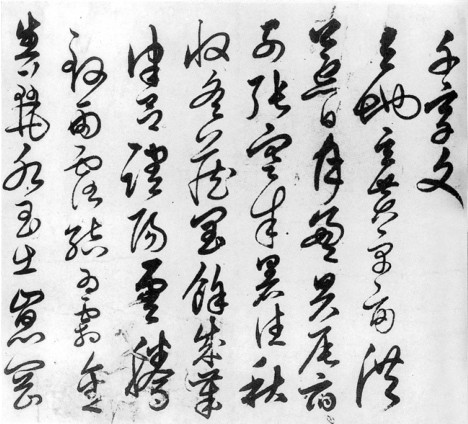 千字文
天地玄黃宇宙洪
荒日月盈昃辰宿
列張寒來暑往秋
收冬藏閏餘成歲
律呂調陽雲騰
致雨露結為霜金
生麗水玉出崑岡